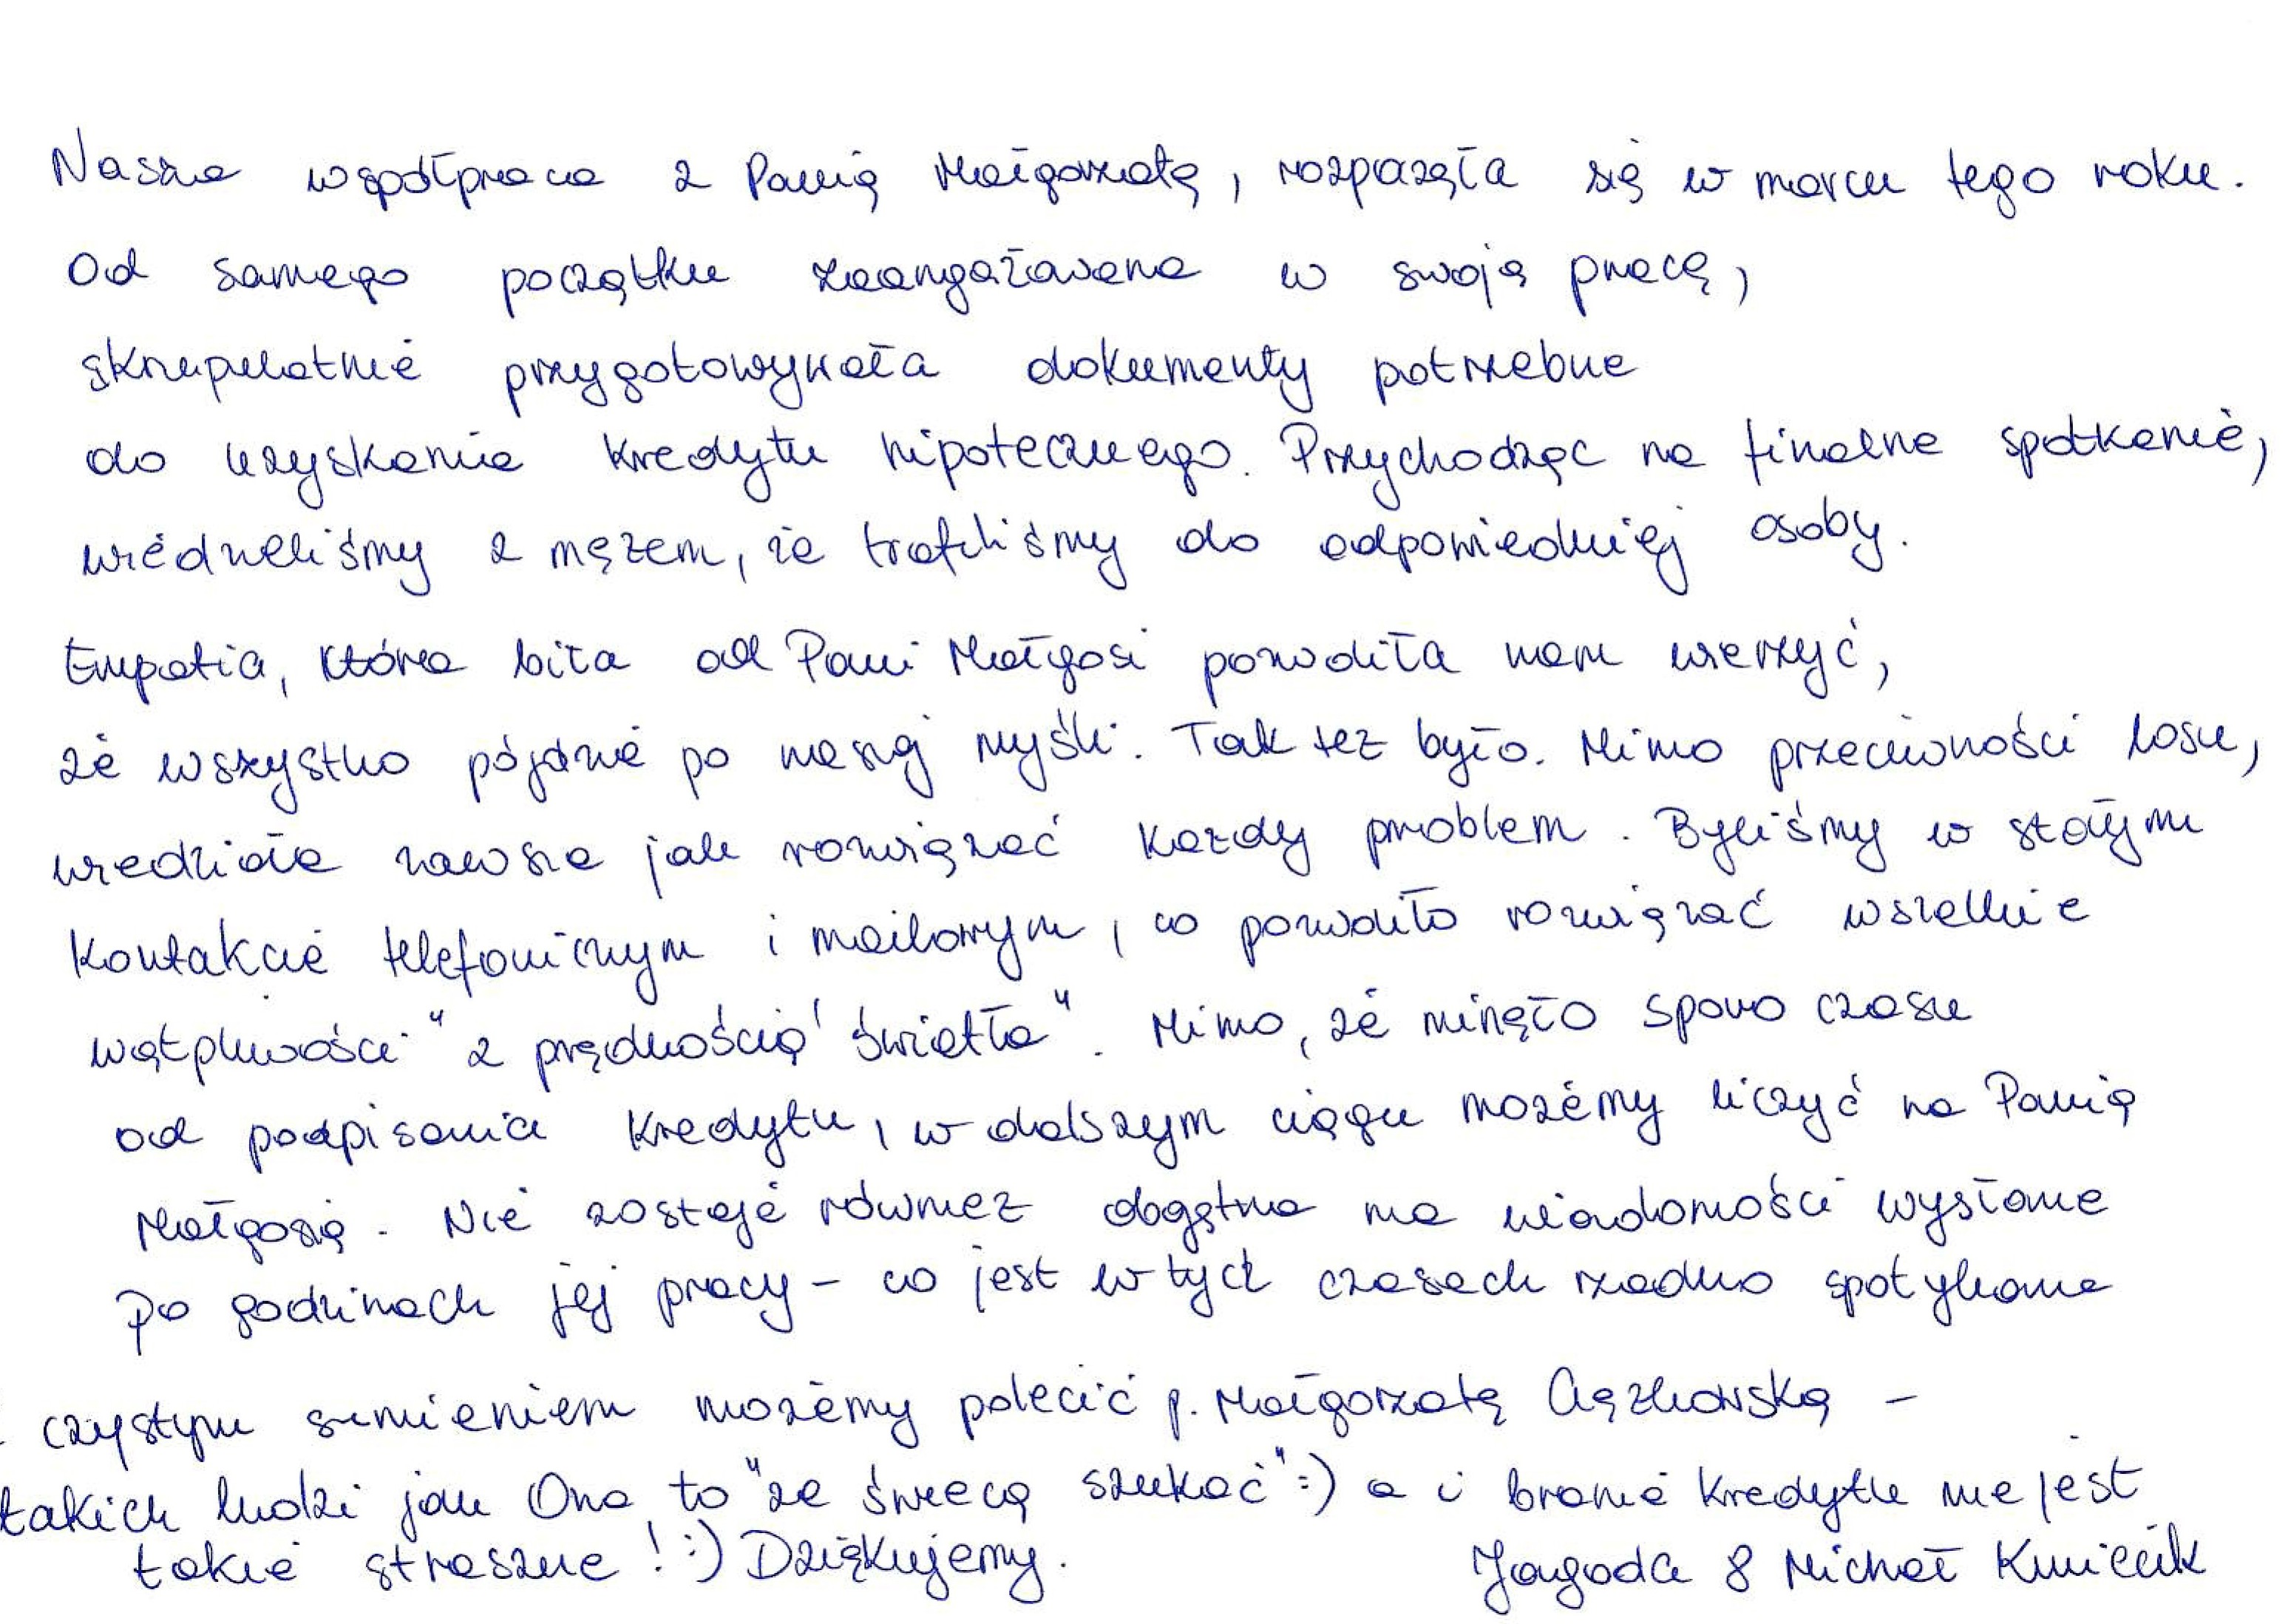 Nasza współpraca z Panią Małgorzatą, rozpoczęła się w marcu tego roku.
Od samego początku zaangażowana w swoją pracę,
skrupulatnie przygotowywała dokumenty potrzebne
do uzyskania kredytu hipotecznego. Przychodząc na finalne spotkanie,
wiedzieliśmy z mężem, że trafiliśmy do odpowiedniej osoby.
Empatia, która biła od Pani Małgosi pozwoliła nam wierzyć,
że wszystko pójdzie po naszej myśli. Tak też było. Mimo przeciwności losu,
wiedziała zawsze jak rozwiązać każdy problem. Byliśmy w stałym
kontakcie telefonicznym i mailowym, co pozwoliło rozwiązać wszelkie
wątpliwości "z prędkością światła". Mimo, że minęło sporo czasu
od podpisania kredytu, w dalszym ciągu możemy liczyć na Panią
Małgosię. Nie zostaje również obojętna na wiadomości wysłane
po godzinach jej pracy - co jest w tych czasach rzadko spotykane
czystym sumieniem możemy polecić p. Małgorzatę -
takich ludzi jak Ona to "ze świecą szukać" :) a i branie kredytu nie jest
takie straszne! :) Dziękujemy.
Jagoda & Michał Kmiecik